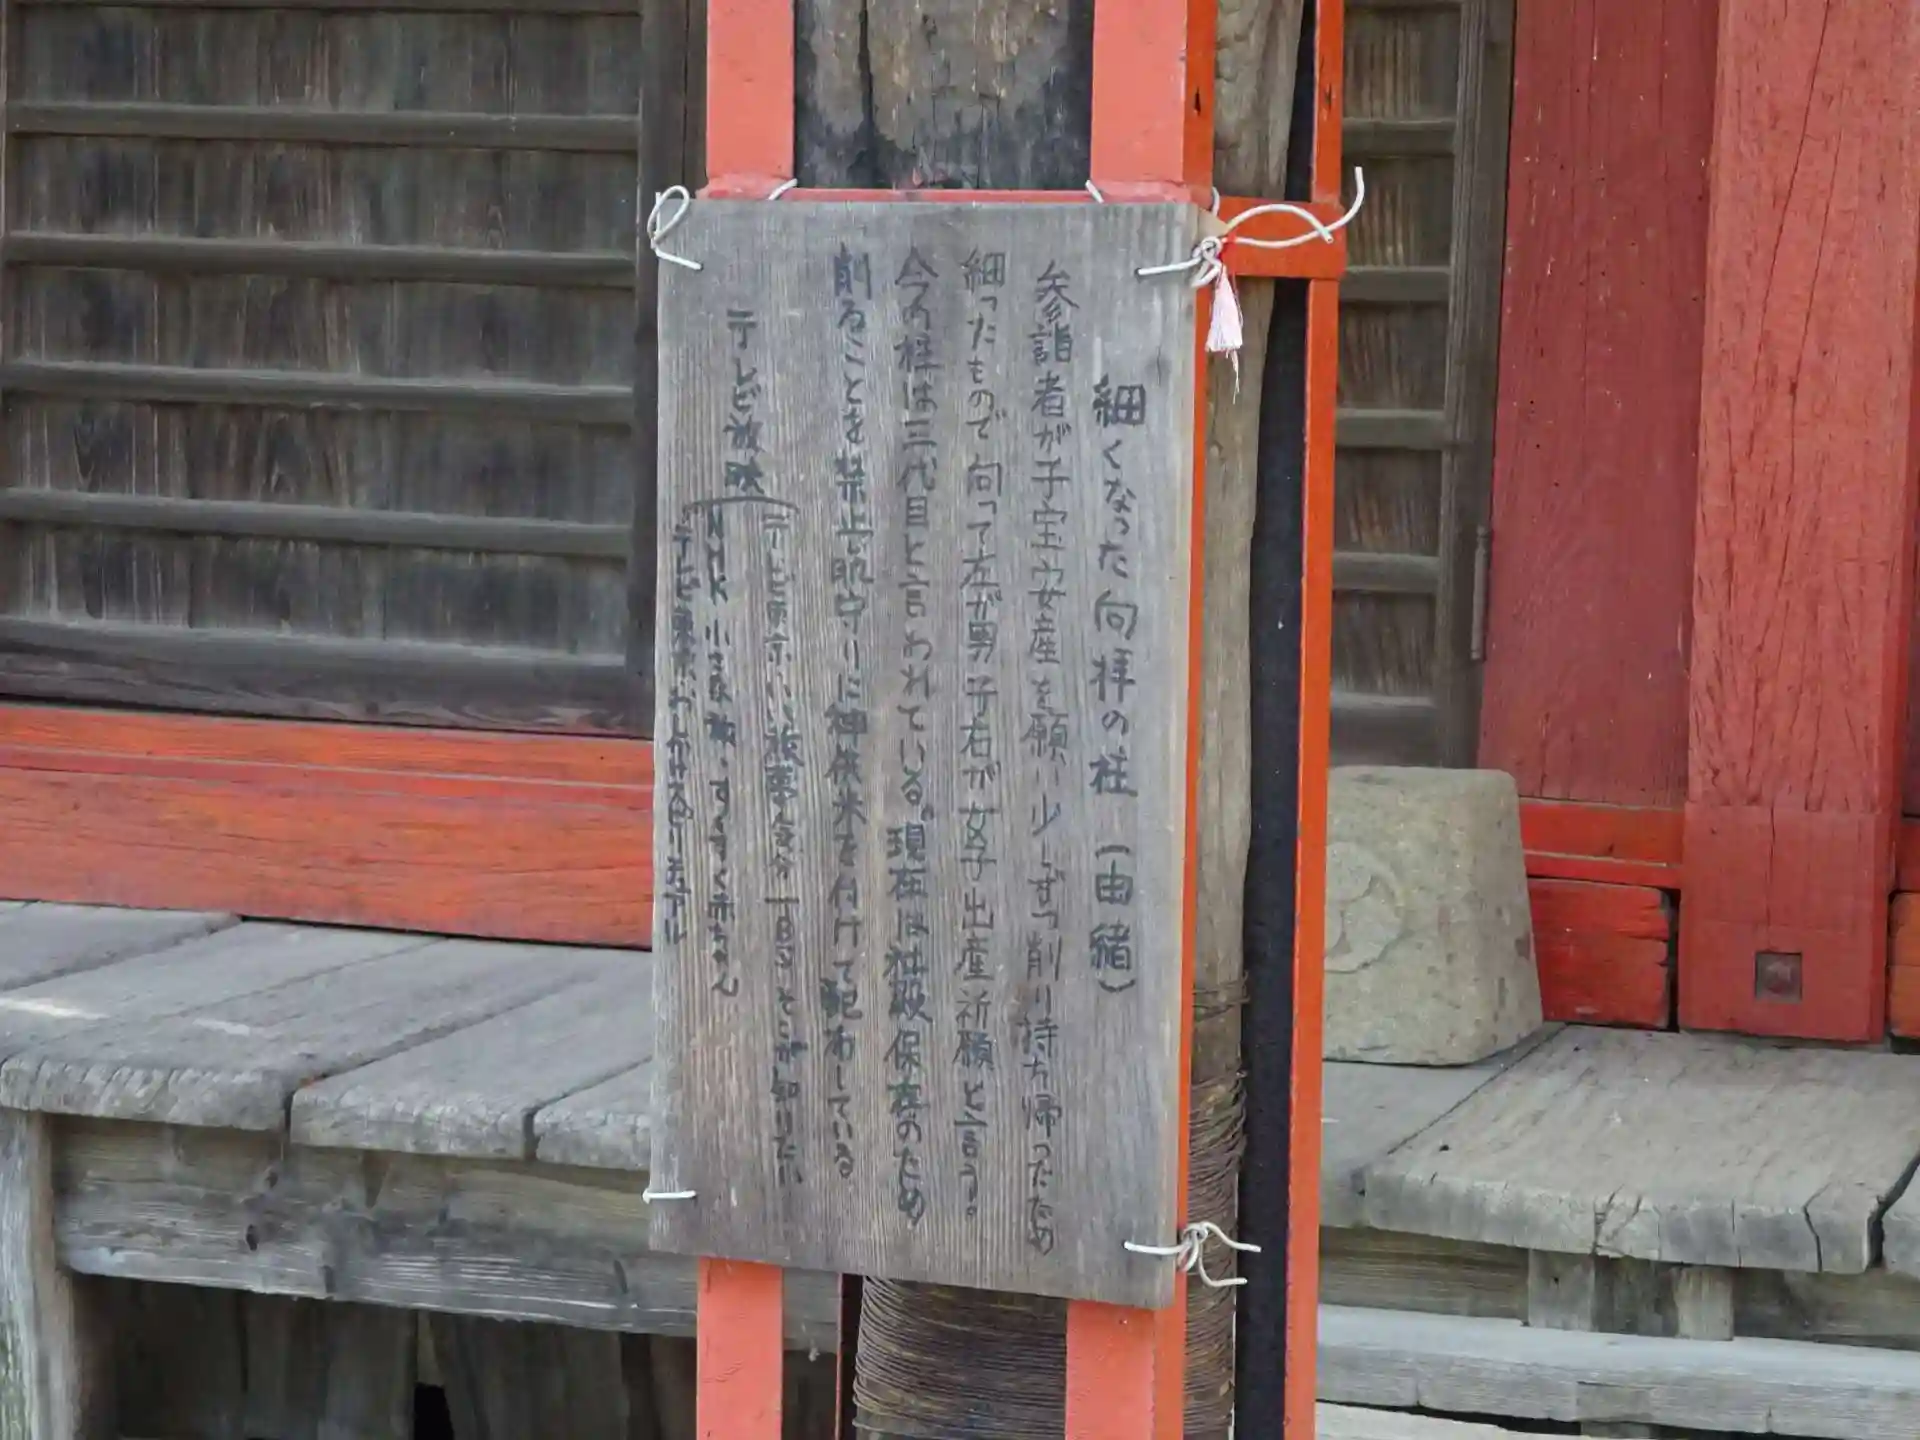 細くなった向拝の柱（由緒）
参詣者が子宝安産を願い少しずつ削り持ち帰ったため
細ったもので向って左が男子右が女子出産祈願と言う。
今の柱は三代目と言われている。現在は社殿保存のため
削ることを禁止し肌守りに神供米を付けて配布している
テレビ放映
テレビ東京いい旅夢気分
そこが知りたい
NHK小さな旅、すくすく赤ちゃん
テレビ東京